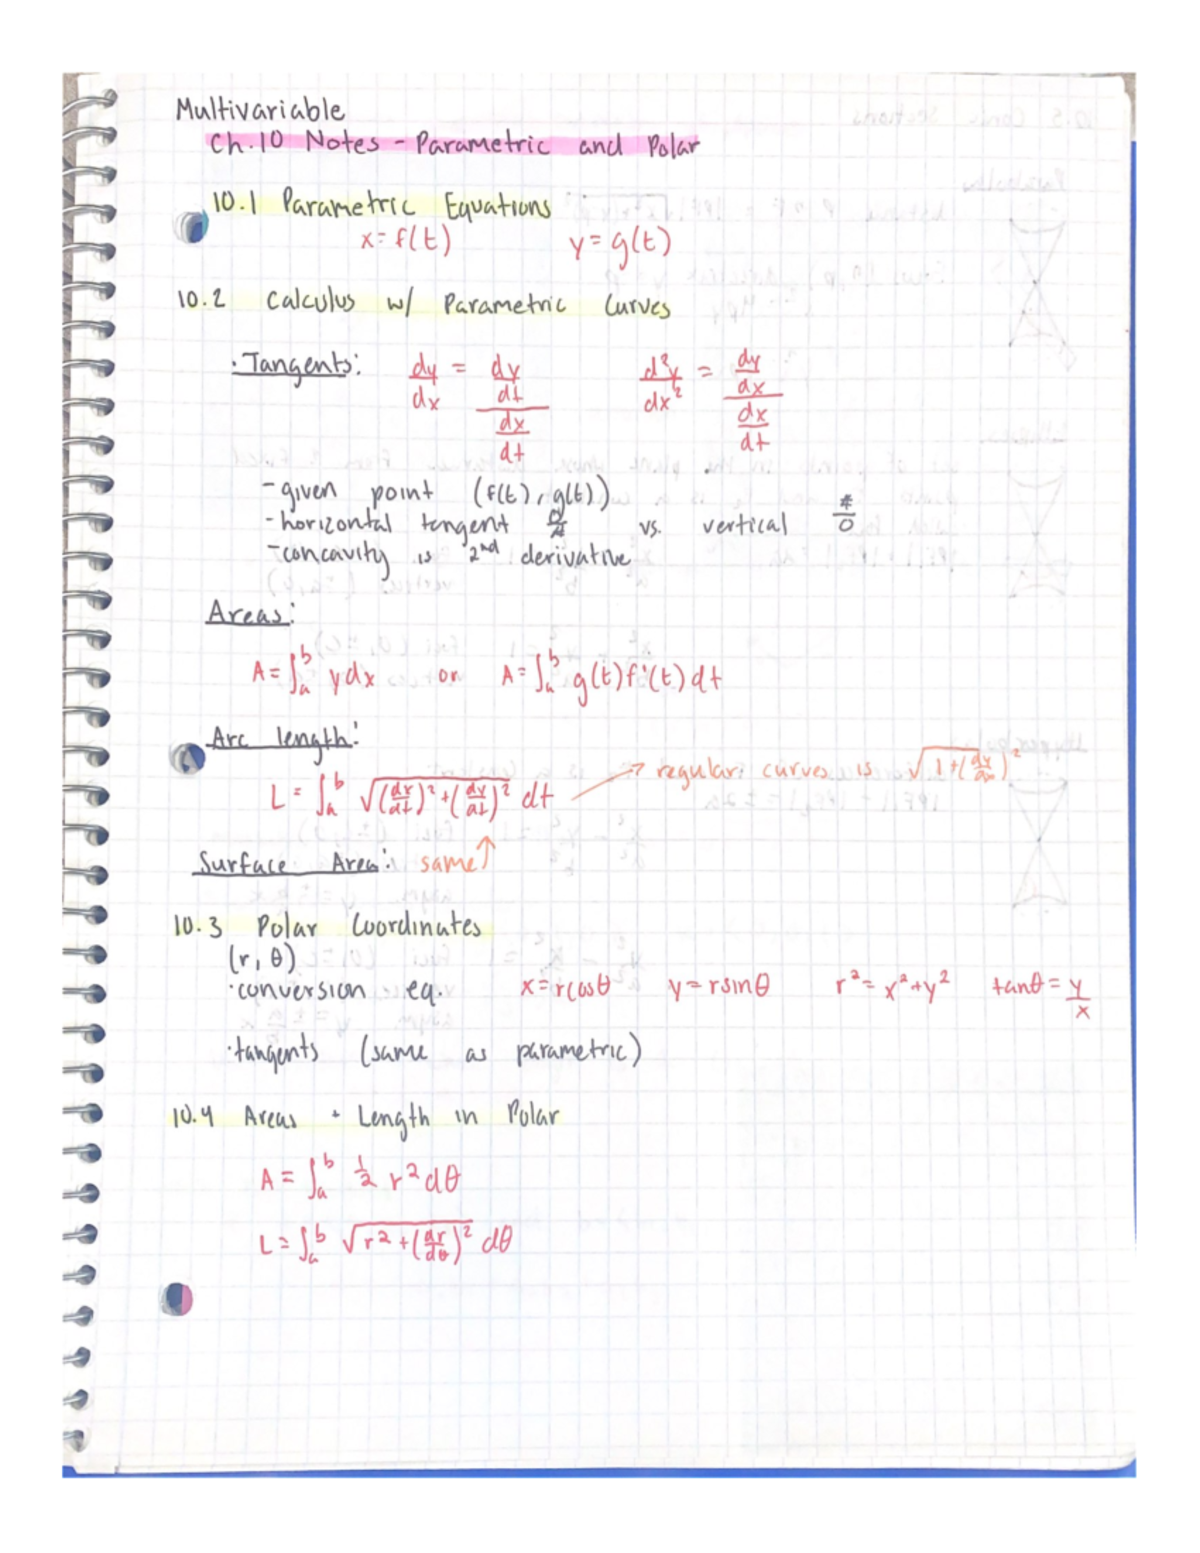 Multivariable
Ch.10 Notes - Parametric and Polar
10.1 Parametric Equations
x=f(t) y=g(t)
10.2 Calculus w/ Parametric Curves
· Tangents: dy/dx = (dy/dt)/(dx/dt) d²y/dx² = (dy/dx)/(dx/dt)
- given point (f(t), g(t))
- horizontal tangent 0/# vs. vertical #/0
- concavity is 2nd derivative
Areas:
A = ∫ₐᵇ y dx or A = ∫ₐᵇ g(t) f'(t) dt
Arc length:
L = ∫ₐᵇ √((dx/dt)² + (dy/dt)²) dt → regular curves is √(1+(dy/dx)²)
Surface Area: same ↑
10.3 Polar Coordinates
(r, θ)
· conversion eq. x=rcosθ y=rsinθ r²=x²+y² tanθ=y/x
· tangents (same as parametric)
10.4 Areas + Length in Polar
A = ∫ₐᵇ ½ r² dθ
L = ∫ₐᵇ √(r² + (dr/dθ)²) dθ